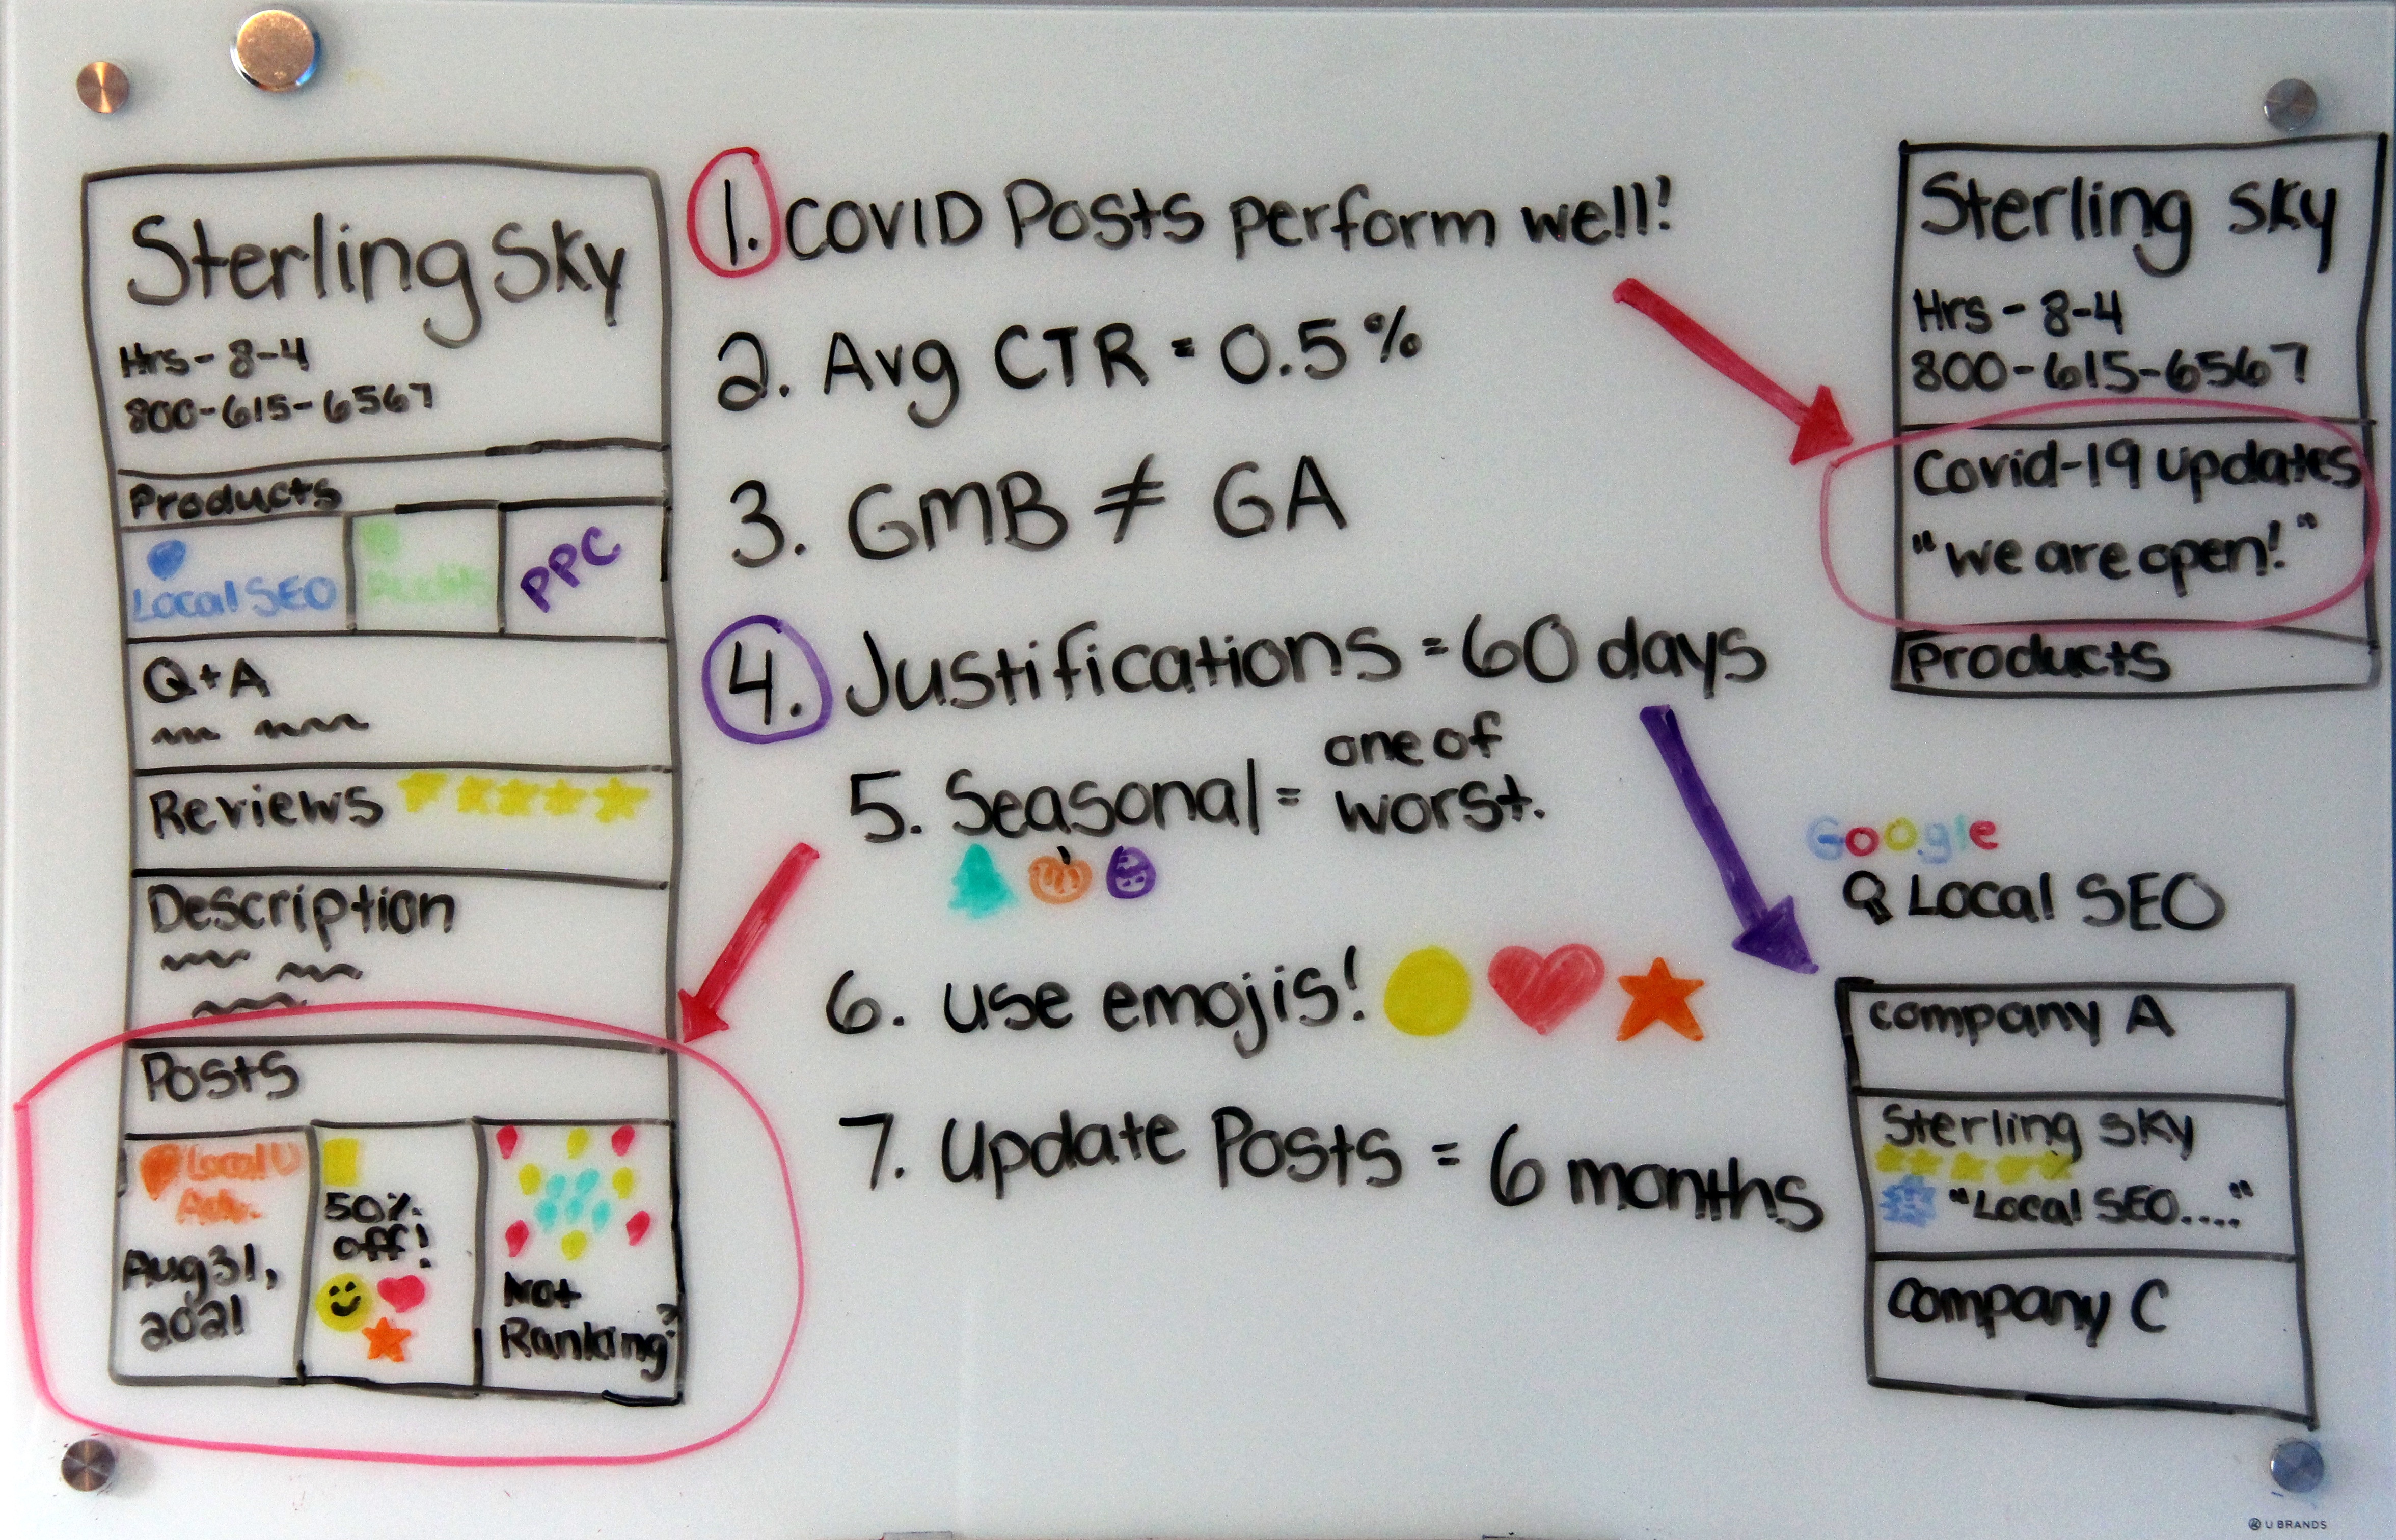 Sterling Sky
Hrs - 8-4
800-615-6567
Products
Local SEO
Audits
PPC
Q+A
Reviews
Description
Posts
Local U
Adv.
Aug 31,
2021
50%
off!
Not
Ranking?
1. COVID Posts perform well!
2. Avg CTR = 0.5%
3. GMB ≠ GA
4. Justifications = 60 days
5. Seasonal = one of
worst.
6. use emojis!
7. Update Posts = 6 months
Sterling Sky
Hrs - 8-4
800-615-6567
Covid-19 updates
"we are open!"
Products
Google
Local SEO
company A
Sterling sky
"Local SEO...."
company C
U BRANDS